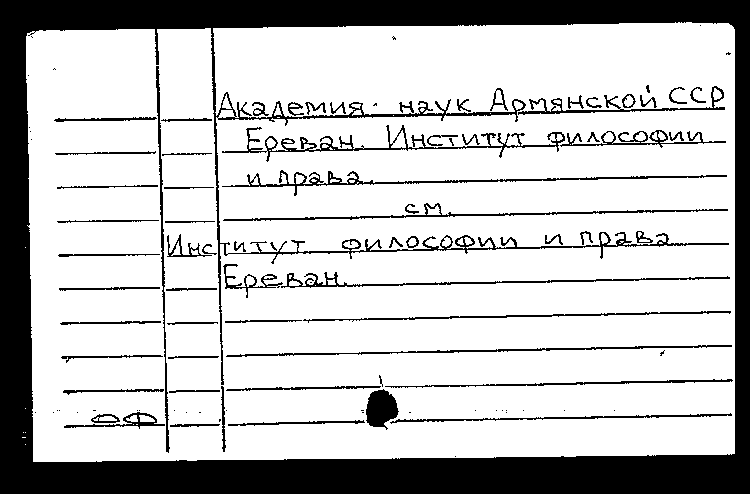 Академия наук Армянской ССР
Ереван. Институт философии
и права.
см.
Институт философии и права
Ереван.
ОФ